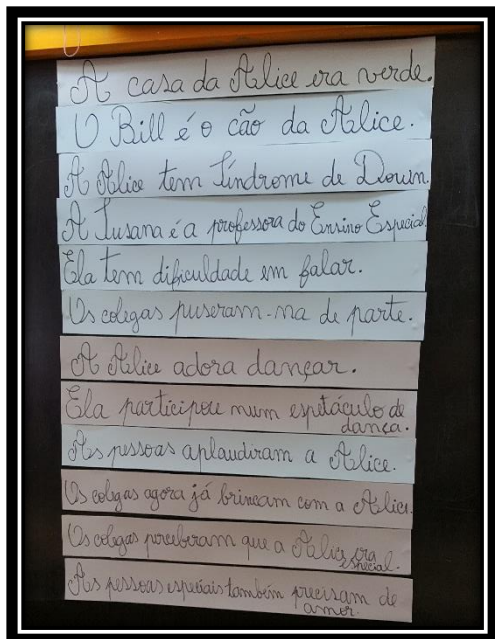 A casa da Alice era verde.
O Bill é o cão da Alice.
A Alice tem Síndrome de Down.
A Susana é a professora do Ensino Especial.
Ela tem dificuldade em falar.
Os colegas puseram-na de parte.
A Alice adora dançar.
Ela participou num espetáculo de
dança.
As pessoas aplaudiram a Alice.
Os colegas agora já brincam com a Alice.
Os colegas perceberam que a Alice era
especial.
As pessoas especiais também precisam de
amor.